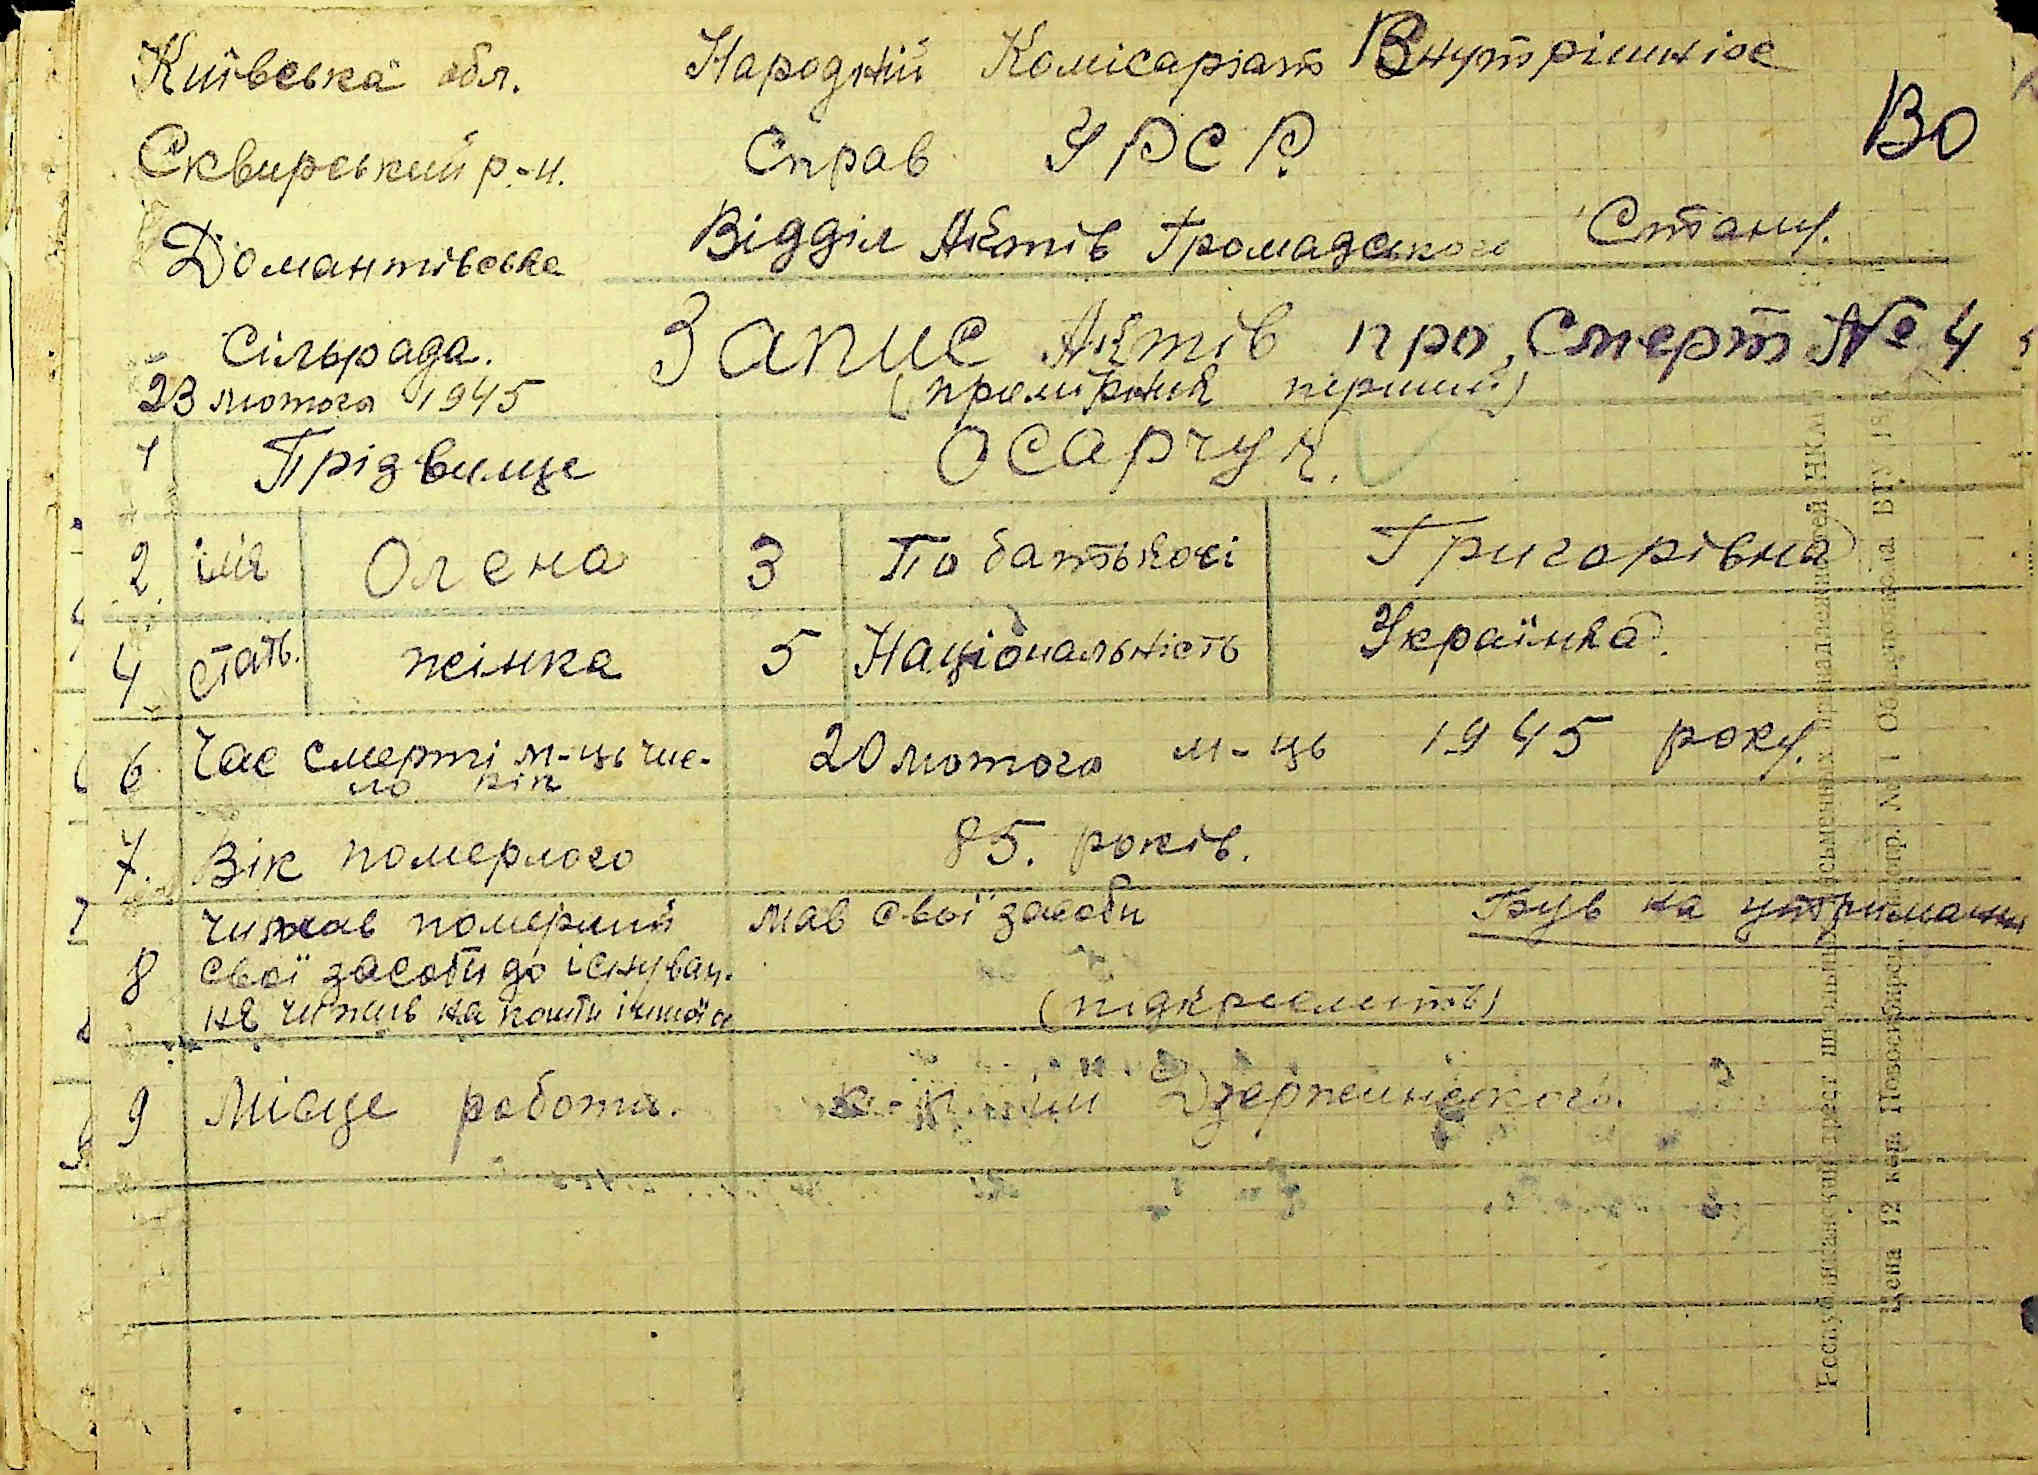 Київська обл. Народній Комісаріат Внутрішніс
Сквирський р.-н. Справ УРСР. ВО
Домантівська Відділ Актів Громадського Стану.
Сільрада. Запис Актів про Смерт № 4
23 лютого 1945 (промірник перший)
1 Прізвище Осарчук.
2 імя Олена 3 По батькові Григорівна
4 стать. жінка 5 Національність Українка.
6 Час смерті м-ць чис- 20 лютого м-ць 1945 року.
ло рік
7. Вік померлого 85. років.
чи мав померший мав свої засоби Був на утриманні
8 свої засоби до існуван.
ня чи жив на кошти
(підкреслить)
9 Місце роботи. Дзержинського.
Республиканский трест школьных письменных принадлежностей НКМП
Цена 12 коп. Новосибирск,